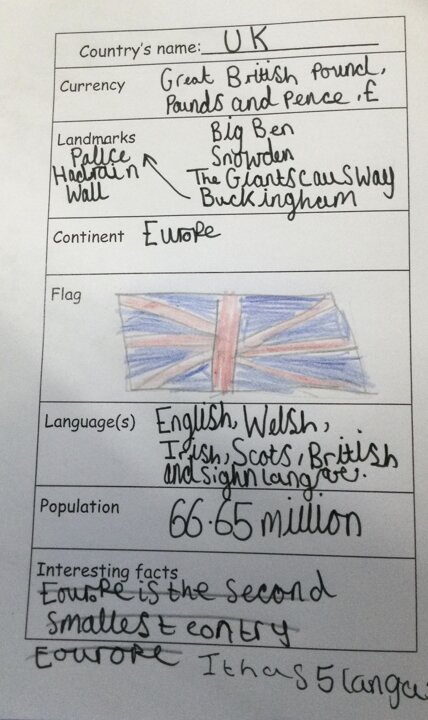 Country's name: UK
Currency Great British Pound,
Pounds and pence, £
Landmarks Big Ben
Snowden
The Giants causway
Buckingham
Pallce
Hadrain
Wall
Continent Europe
Flag
Language(s) English, Welsh,
Irish, Scots, British
and sighn langave.
Population 66.65 million
Interesting facts
Eourope is the second
smallest contry
Eourope It has 5 langu